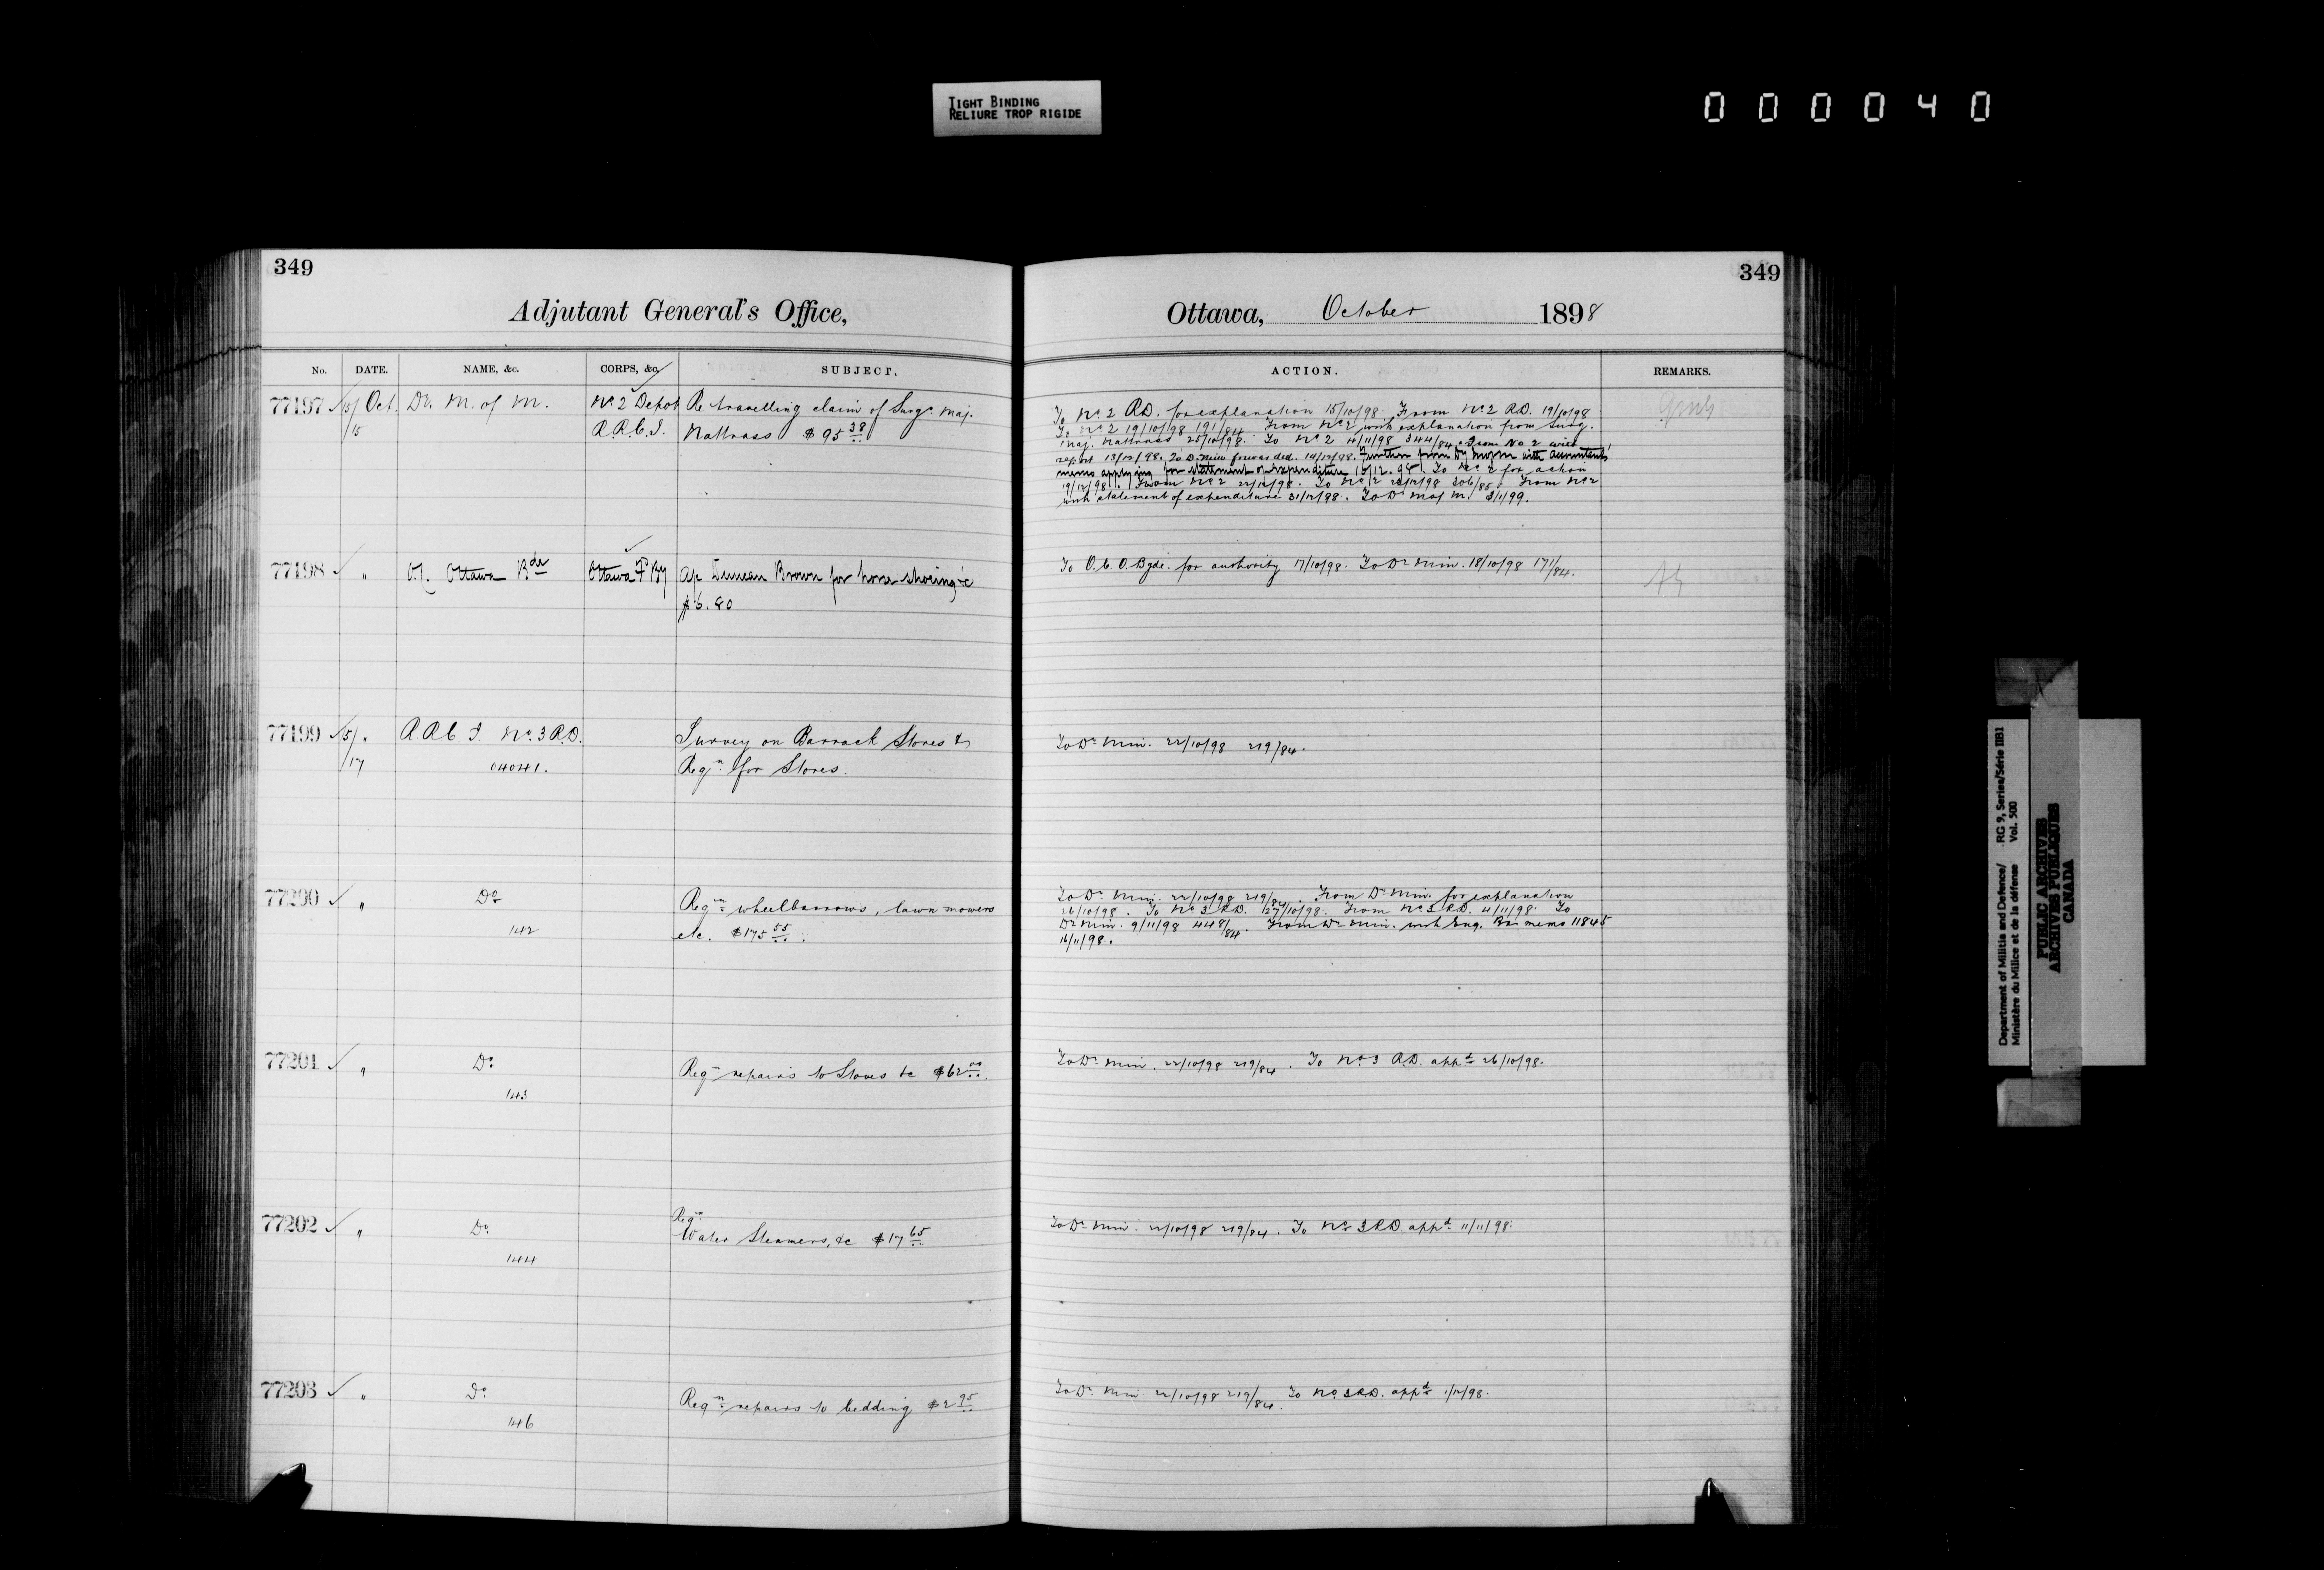 TIGHT BINDING
RELIURE TROP RIGIDE
000040
349
349
Adjutant General's Office,
Ottawa, October 1898
No. DATE. NAME, &c. CORPS, &c. SUBJECT.
ACTION. REMARKS.
77197 15/ Oct. Dr. M. of M. No. 2 Depot Re travelling claim of Surg. Maj.
/15 R.R.C.I. Nattrass $95 38
To No. 2 R.D. for explanation 15/10/98. From No. 2 R.D. 19/10/98
To No. 2 19/10/98 191/84 From No. 2 with explanation from Surg.
Maj. Nattrass 25/10/98. To No. 2 4/11/98 344/84. From No 2 with
report 13/12/98. To D. Min forwarded. 14/12/98. Further from Dy with Accountants'
memo applying for statement of expenditure 16/12.98. To No. 2 for action
19/12/98. From No. 2 22/12/98. To No. 2 306/85. From No. 2
with statement of expenditure 31/12/98. To D. of M. 3/1/99.
77198 " Ottawa Bde Ottawa Fd By a/c Duncan Brown for horse shoeing &c
$6.80
To O.C. O. Bgde. for authority 17/10/98. To Dr. Min. 18/10/98 171/84.
77199 15/ " R.R.C.I. No. 3 R.D. Survey on Barrack Stores &
/17 04041. Reqn. for Stores.
To Dr. Min. 22/10/98 219/84.
77200 " Do Reqn. wheelbarrows, lawn mowers
142 etc. $175 55.
To Dr. Min. 22/10/98 219/84. From Dr. Min. for explanation
26/10/98. To No. 3 R.D. 27/10/98. From No. 3 R.D. 4/11/98. To
Dr. Min. 9/11/98 448/84. From Dr. Min. with Eng. Br. memo 11845
16/11/98.
77201 " Do Reqn repairs to Stoves &c $62 00.
143
To Dr. Min. 22/10/98 219/84. To No. 3 R.D. appd 26/10/98.
77202 " Do Reqn.
Water Steamers, &c $17 65
144
To Dr. Min. 22/10/98 219/84. To No. 3 R.D. appd 11/11/98.
77203 " Do Reqn. repairs to bedding $2 95
146
To Dr. Min 22/10/98 219/84. To No. 3 R.D. appd 1/12/98.
Department of Militia and Defence/ RG 9, Series/Série IIB1
Ministère du Milice et de la défense Vol. 500
PUBLIC ARCHIVES
ARCHIVES PUBLIQUES
CANADA